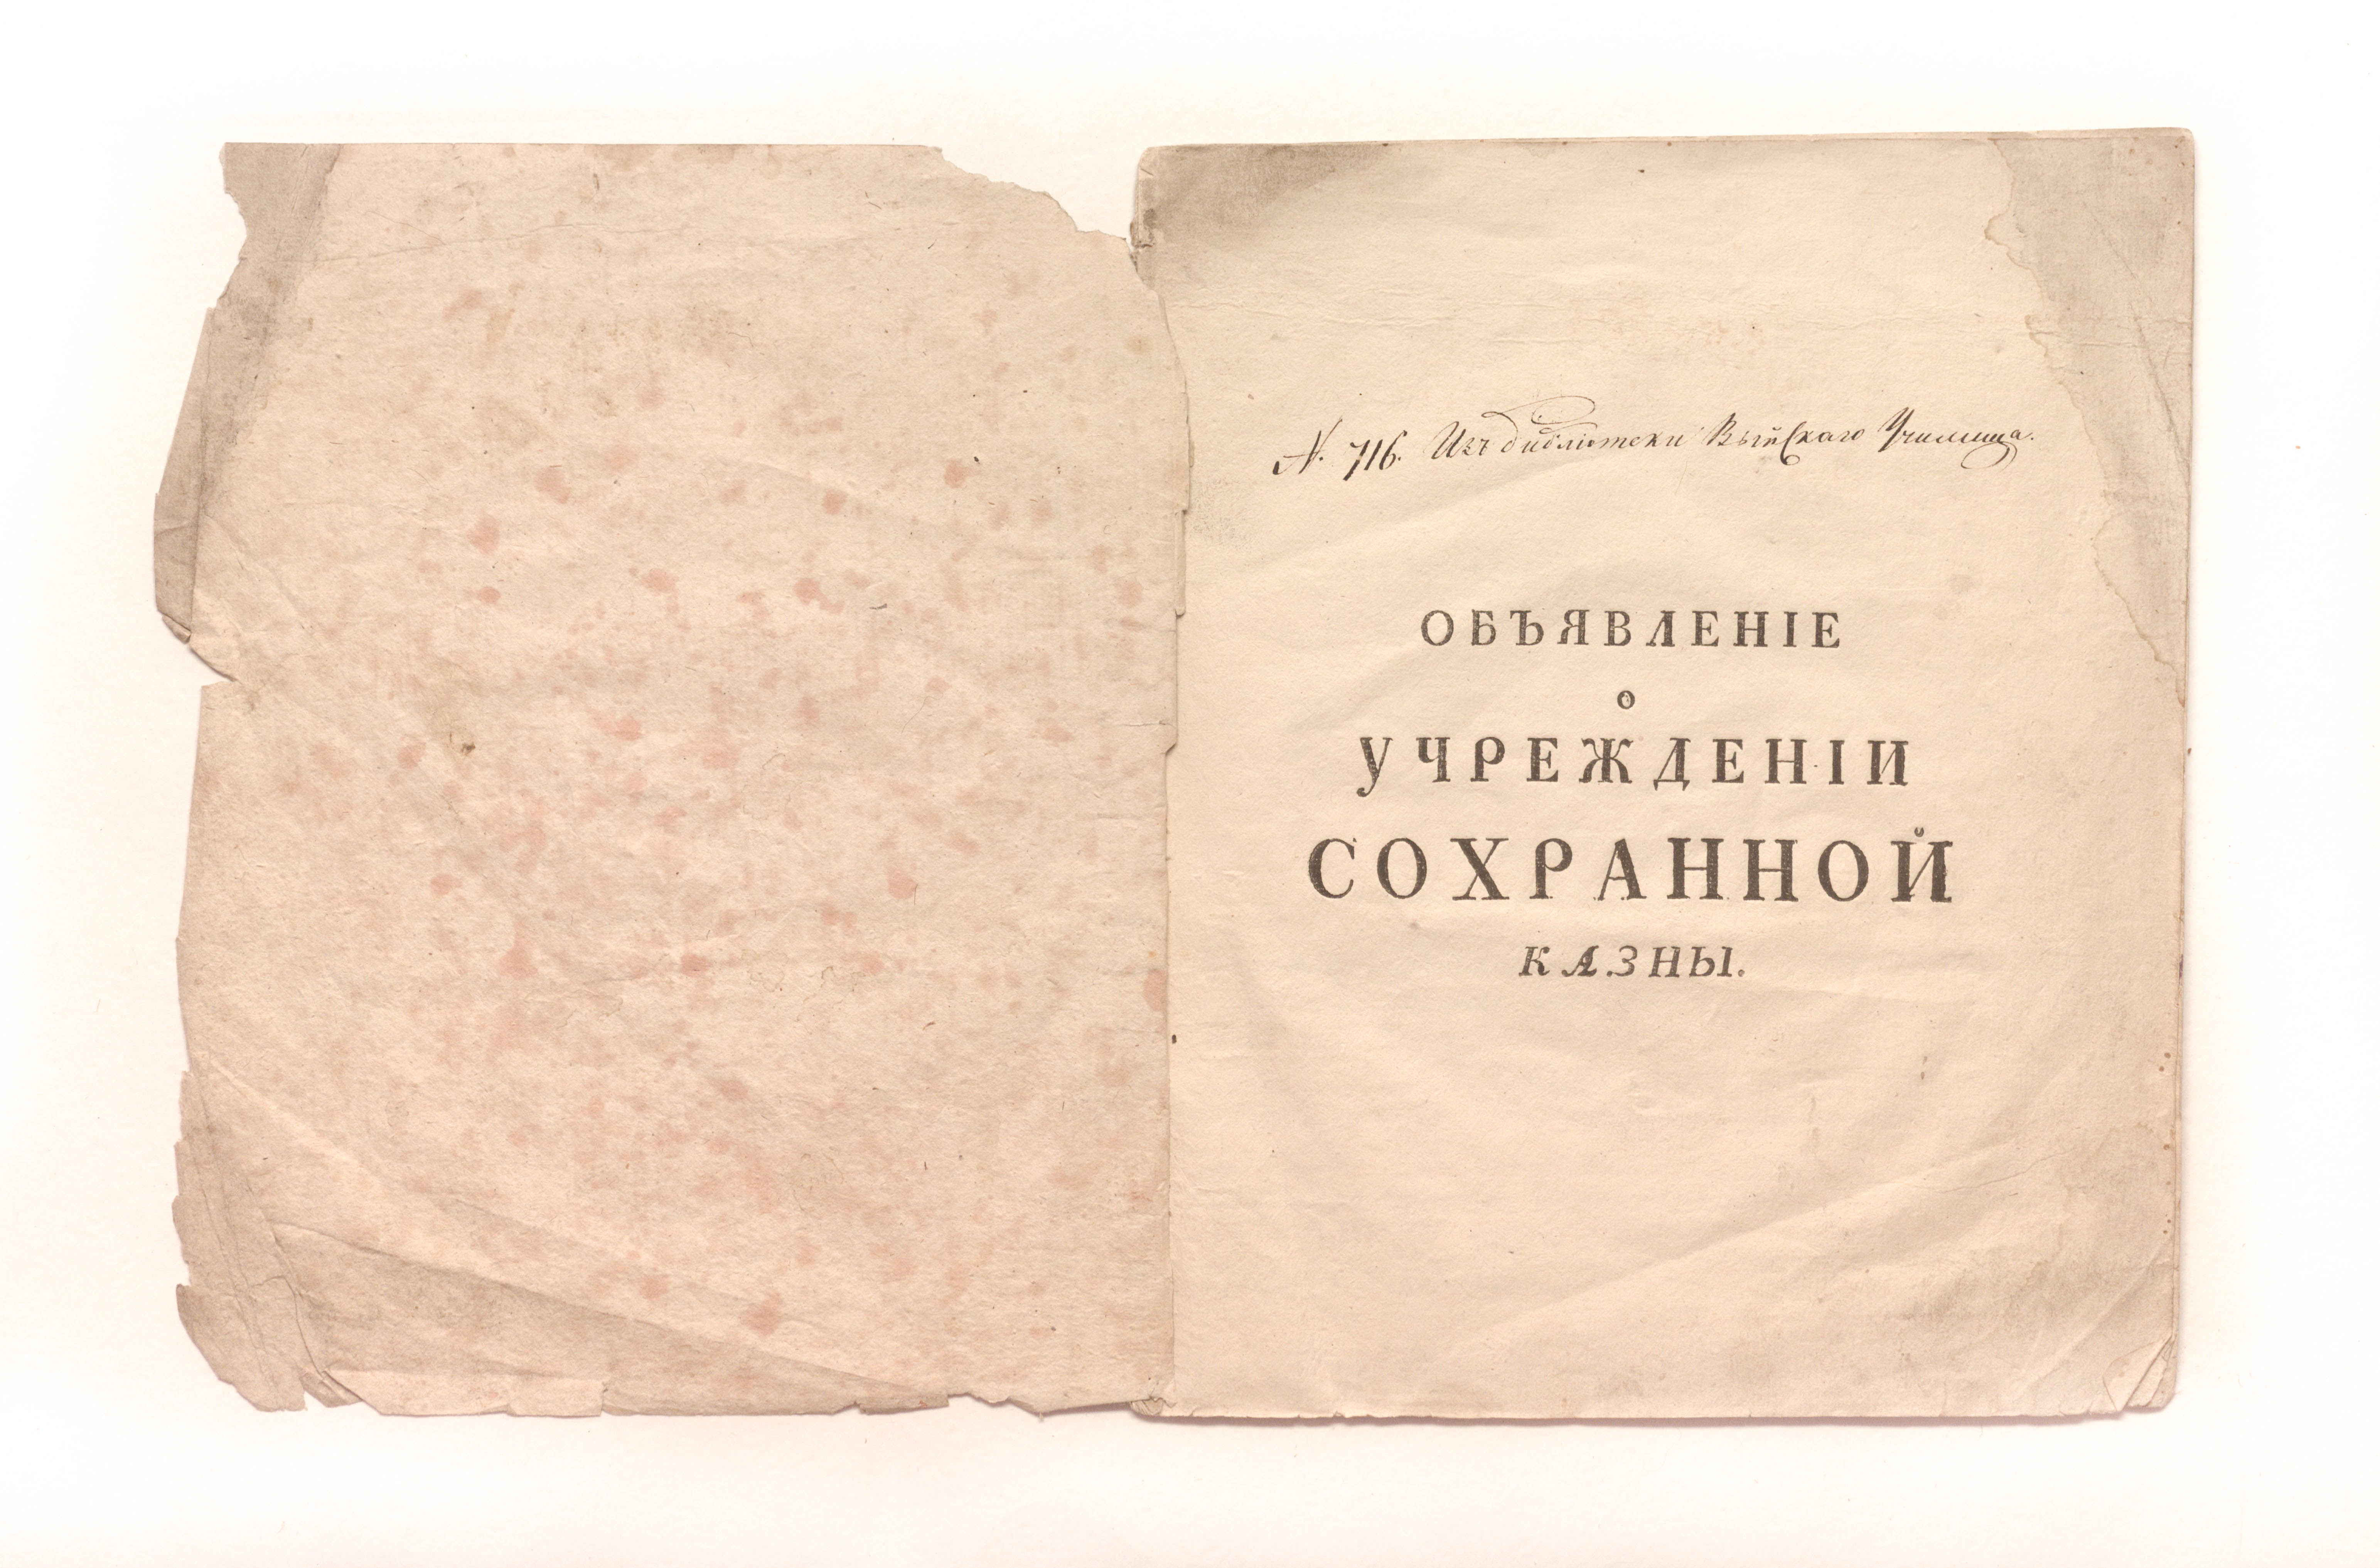 N. 716. Изъ библіотеки Выйскаго Училища.
ОБЪЯВЛЕНІЕ
О
УЧРЕЖДЕНІИ
СОХРАННОЙ
КАЗНЫ.